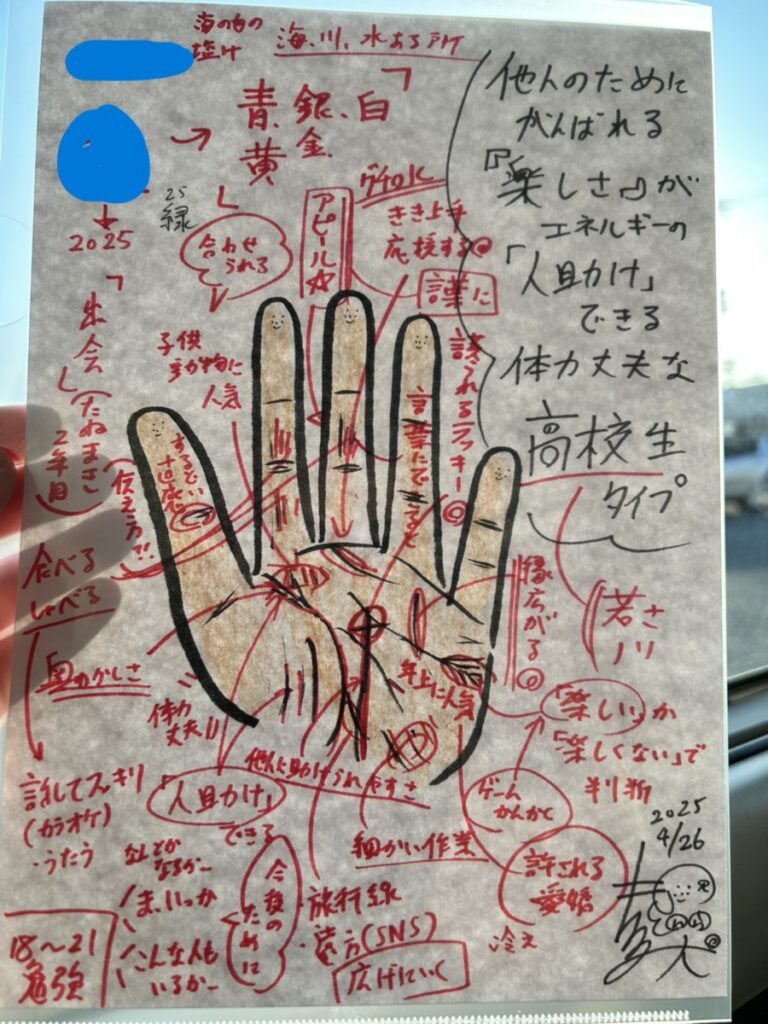 海のもの
塩け
海、川、水ある所
青.銀.白
黄 金
→2025
25
緑
「出会」
(たねまき
2年目)
合わせ
られる
アピール☆
ダイレクトに
きき上手
応援する◎
言葉に
他人のために
がんばれる
『楽しさ』が
エネルギーの
「人助け」
できる
体力丈夫な
高校生
タイプ
子供
動物に
人気
誘われるラッキー◎
言葉にでると
するどい
直感
伝え方!!
食べる
しゃべる
奥ゆかしさ
体力
丈夫!!
縁広がる◎
若さ
年上に人気
「楽しい」か
「楽しくない」で
判断
他人に助けられやすさ
話してスッキリ
(カラオケ)
・うたう
「人助け」
できる
細かい作業
ゲーム
かんかく
許される
愛嬌
なんとか
なるかー
ま、いっか
こんな人も
いるかー
今後の
ために
・旅行線
・遠方(SNS)
広げにいく
冷え
18〜21
勉強
2025
4/26